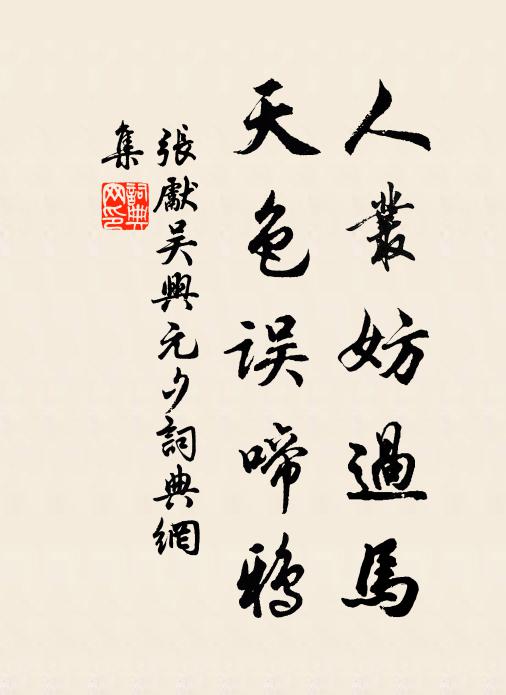 人叢妨過馬
天色误啼鴉
張獻吴興元夕詞典網
集
詞典
网印